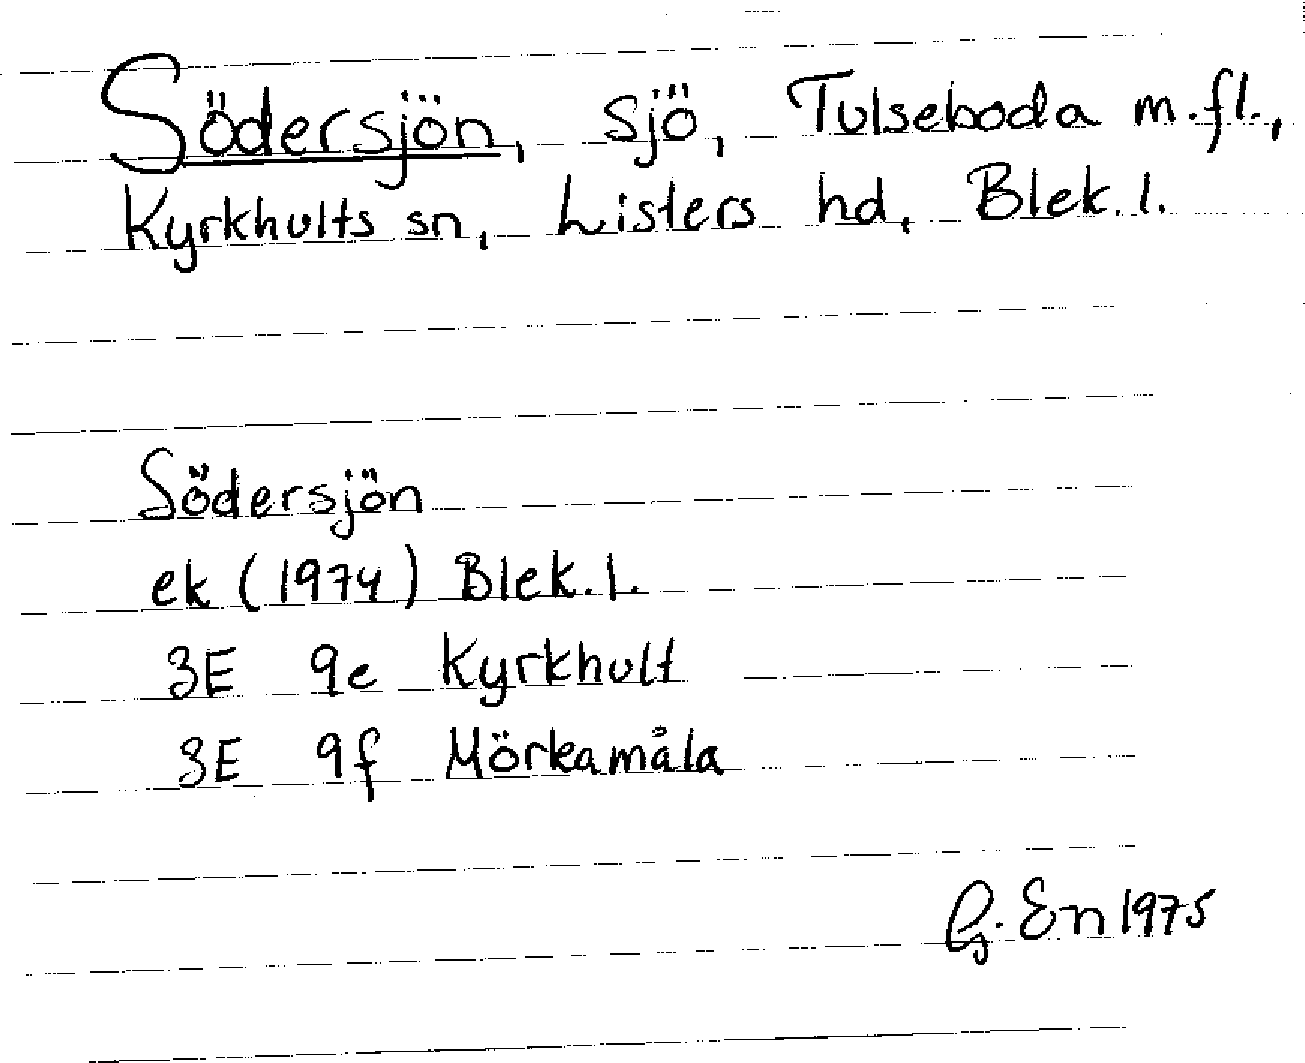 Södersjön, sjö, Tulseboda m.fl.,
Kyrkhults sn, Listers hd, Blek. l.
Södersjön
ek (1974) Blek. l.
3E 9e Kyrkhult
3E 9f Mörkamåla
G. En 1975